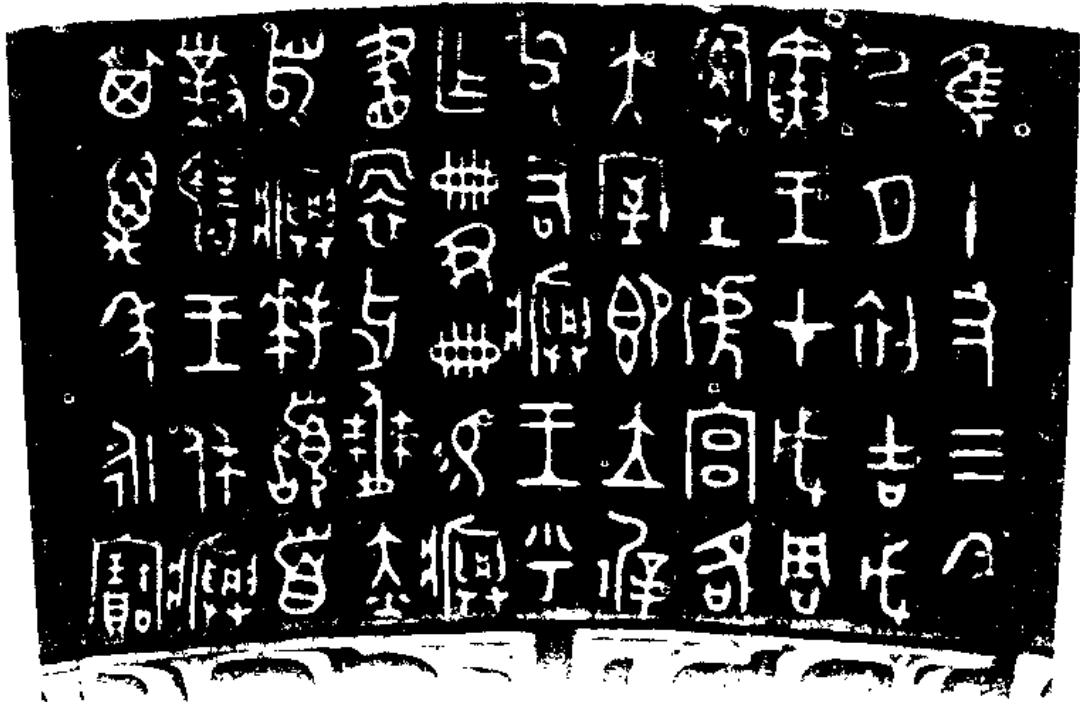 隹十又三年
九月初吉戊
寅王才成周
𤔲土淲宮各
大室即立𢓊
父右𤼈王乎
乍冊尹冊易𤼈
畫𧘂牙僰赤
舄𤼈拜𩒨首
對揚王休𤼈
其萬年永寶